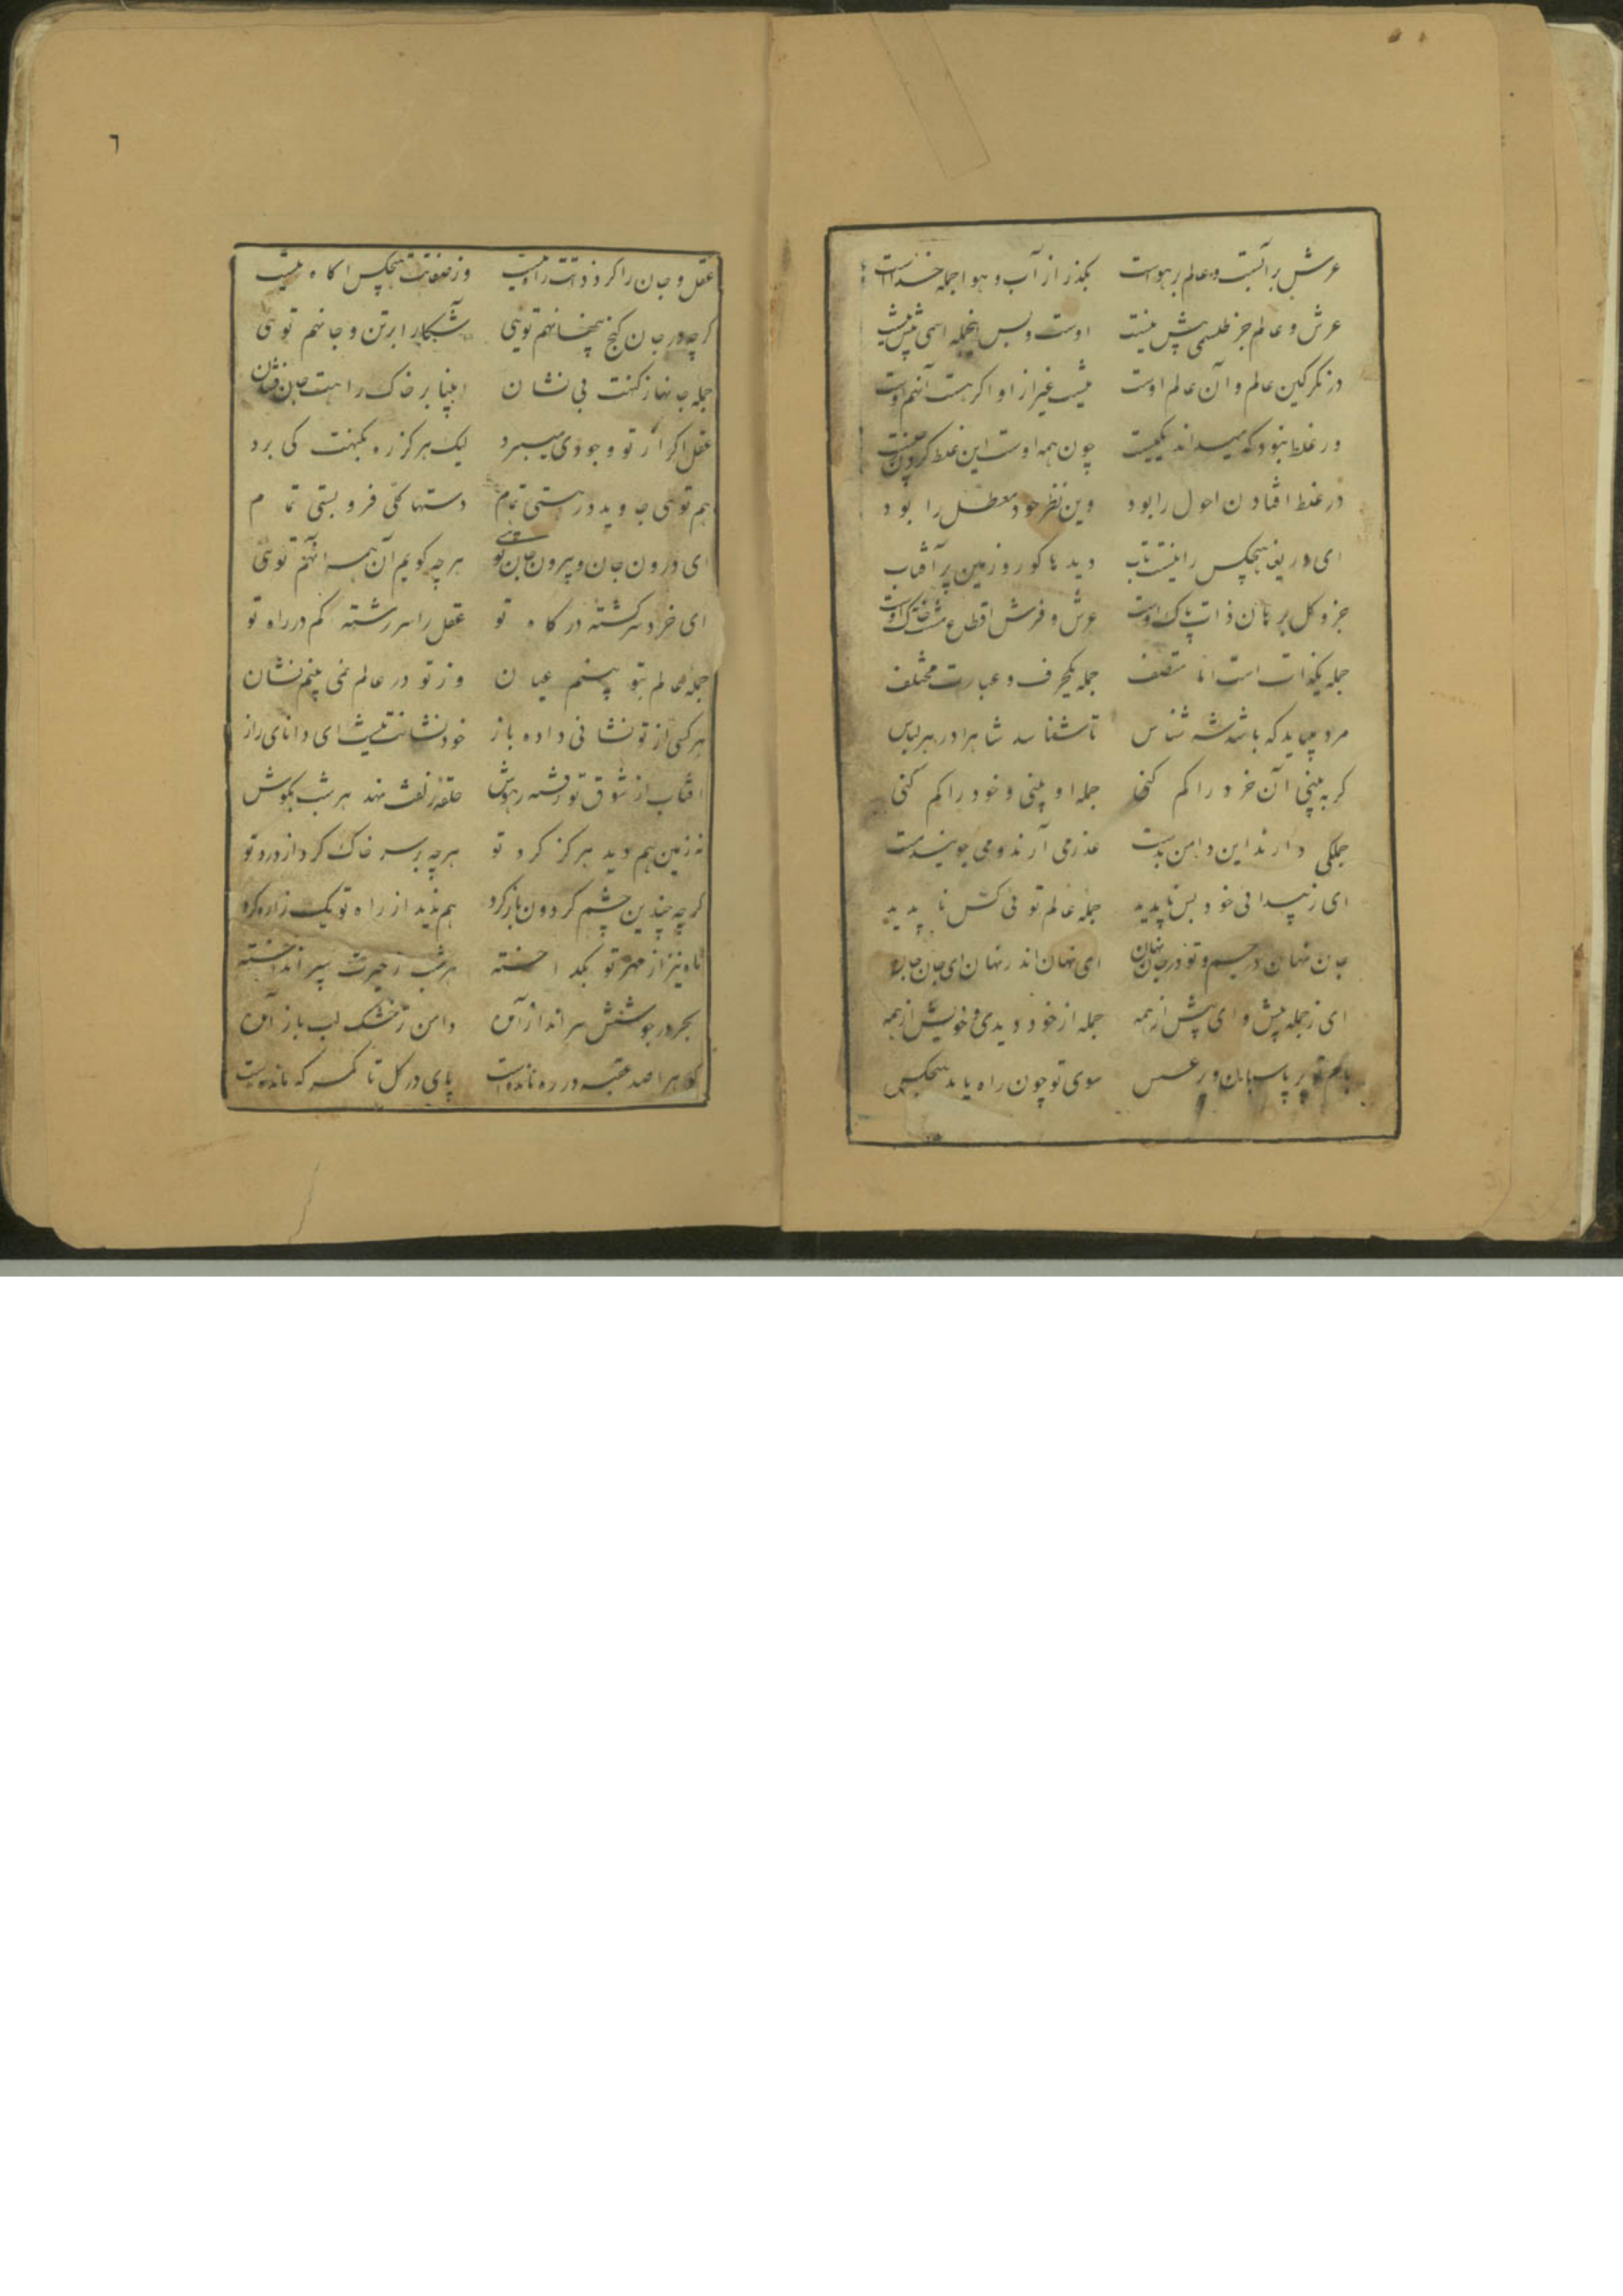 عرش بر آبست و عالم بر هواست بگذر از آب و هوا جمله خداست
عرش و عالم جز طلسمی پیش نیست اوست و بس اینجمله اسمی بیش نیست
در نگر کین عالم و آن عالم اوست نیست غیر از او اگر هست آنهم اوست
ور غلط نبود که میداند یکیست چون همه اوست این غلط کردن
در غلط افتادن احول را بود وین نظر خود معطل را بود
ای دریغا هیچکس را نیست تاب دیدها کور و زمین پر آفتاب
جزو کل برهان ذات پاک اوست عرش و فرش اقطاع مشت خاک اوست
جمله یکذات است اما متصف جمله یکحرف و عبارت مختلف
مرد میباید که باشد شه شناس تا شناسد شاهرا در هر لباس
گر به بینی آن خرد را گم کنی جمله او بینی و خود را گم کنی
جملگی دارند این دامن بدست عذر می آرند و می جویند مست
ای ز پیدائی خود بس ناپدید جمله عالم تو نی کس ناپدید
جان نهان در جسم و تو در جان نهان ای نهان اندر نهان ای جان جان
ای ز جمله پیش و ای پیش از همه جمله از خود دیدی و خویش از همه
بام تو پر پاسبان و پر عسس سوی تو چون راه یابد هیچکس
٦
عقل و جان را گرد ذاتت راه نیست وز صفاتت هیچکس آگاه نیست
گرچه در جان گنج پنهانهم توئی آشکارا بر تن و جانهم توئی
جمله جانها ز کنهت بی نشان انبیا بر خاک راهت جان فشان
عقل اگر از تو وجودی میبرد لیک هرگز ره بکنهت کی برد
هم توئی جاوید در هستی تمام دستها کلی فرو بستی تمام
ای درون جان و بیرون جان توئی هر چه گویم آن نه آنهم توئی
ای خرد سرگشته درگاه تو عقل را سر رشته گم در راه تو
جمله عالم بتو بینم عیان وز تو در عالم نمی بینم نشان
هر کسی از تو نشانی داده باز خود نشانت نیست ای دانای راز
آفتاب از شوق تو رفته ز هوش حلقه زلفت نهد هر شب بگوش
نه زمین هم دید هرگز گرد تو هر چه بر سر خاک کرد از درد تو
گرچه چندین چشم گردون باز کرد هم ندید از راه تو یک ذره گرد
ماه نیز از مهر تو بگداخته هر شب ز حیرت سپر انداخته
بحر در جوشش سر انداز آمده دامن تر خشک لب باز آمده
کوه را صد عقبه در ره مانده است پای در گل تا کمر که مانده است